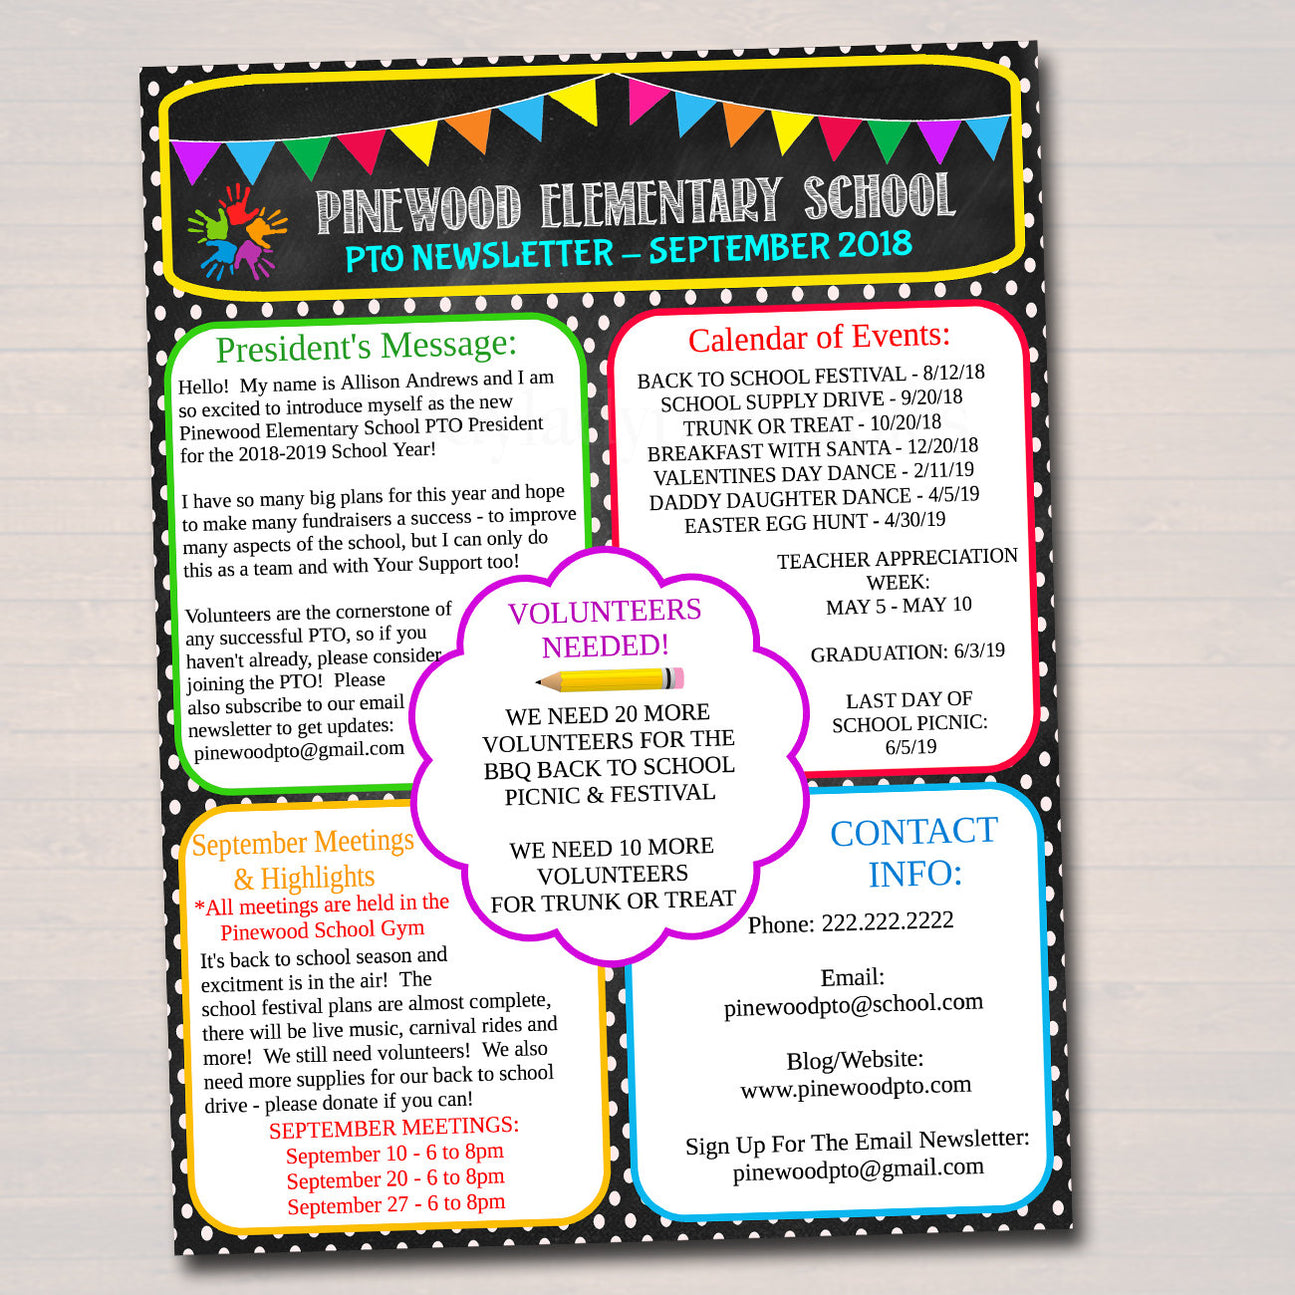 PINEWOOD ELEMENTARY SCHOOL
PTO NEWSLETTER – SEPTEMBER 2018
President's Message:
Hello! My name is Allison Andrews and I am
so excited to introduce myself as the new
Pinewood Elementary School PTO President
for the 2018-2019 School Year!
I have so many big plans for this year and hope
to make many fundraisers a success - to improve
many aspects of the school, but I can only do
this as a team and with Your Support too!
Volunteers are the cornerstone of
any successful PTO, so if you
haven't already, please consider
joining the PTO! Please
also subscribe to our email
newsletter to get updates:
pinewoodpto@gmail.com
Calendar of Events:
BACK TO SCHOOL FESTIVAL - 8/12/18
SCHOOL SUPPLY DRIVE - 9/20/18
TRUNK OR TREAT - 10/20/18
BREAKFAST WITH SANTA - 12/20/18
VALENTINES DAY DANCE - 2/11/19
DADDY DAUGHTER DANCE - 4/5/19
EASTER EGG HUNT - 4/30/19
TEACHER APPRECIATION
WEEK:
MAY 5 - MAY 10
GRADUATION: 6/3/19
LAST DAY OF
SCHOOL PICNIC:
6/5/19
VOLUNTEERS
NEEDED!
WE NEED 20 MORE
VOLUNTEERS FOR THE
BBQ BACK TO SCHOOL
PICNIC & FESTIVAL
WE NEED 10 MORE
VOLUNTEERS
FOR TRUNK OR TREAT
September Meetings
& Highlights
*All meetings are held in the
Pinewood School Gym
It's back to school season and
excitment is in the air! The
school festival plans are almost complete,
there will be live music, carnival rides and
more! We still need volunteers! We also
need more supplies for our back to school
drive - please donate if you can!
SEPTEMBER MEETINGS:
September 10 - 6 to 8pm
September 20 - 6 to 8pm
September 27 - 6 to 8pm
CONTACT
INFO:
Phone: 222.222.2222
Email:
pinewoodpto@school.com
Blog/Website:
www.pinewoodpto.com
Sign Up For The Email Newsletter:
pinewoodpto@gmail.com